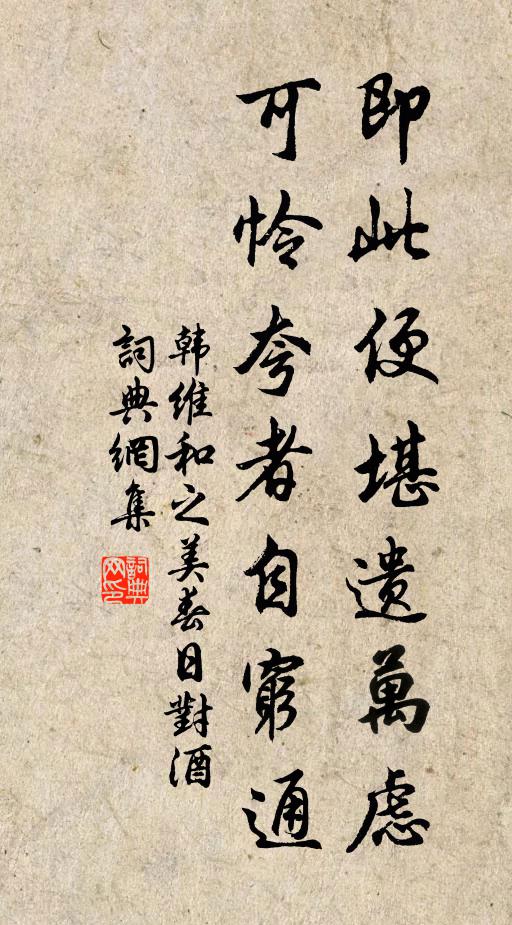 即此便堪遗萬慮
可怜夸者自窮通
韩维和之美春日對酒
詞典網集
詞典网印